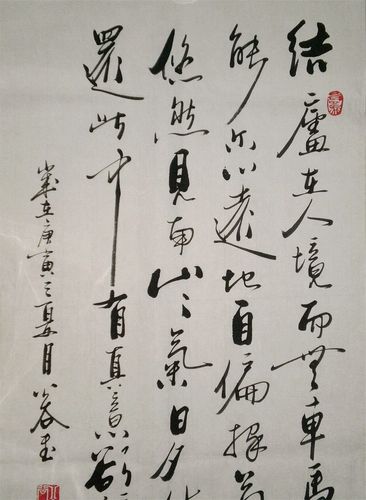 結廬在人境而無車馬
能尔心遠地自偏採
悠然見南山〻氣日夕
還此中有真意欲
歲在庚寅之夏月